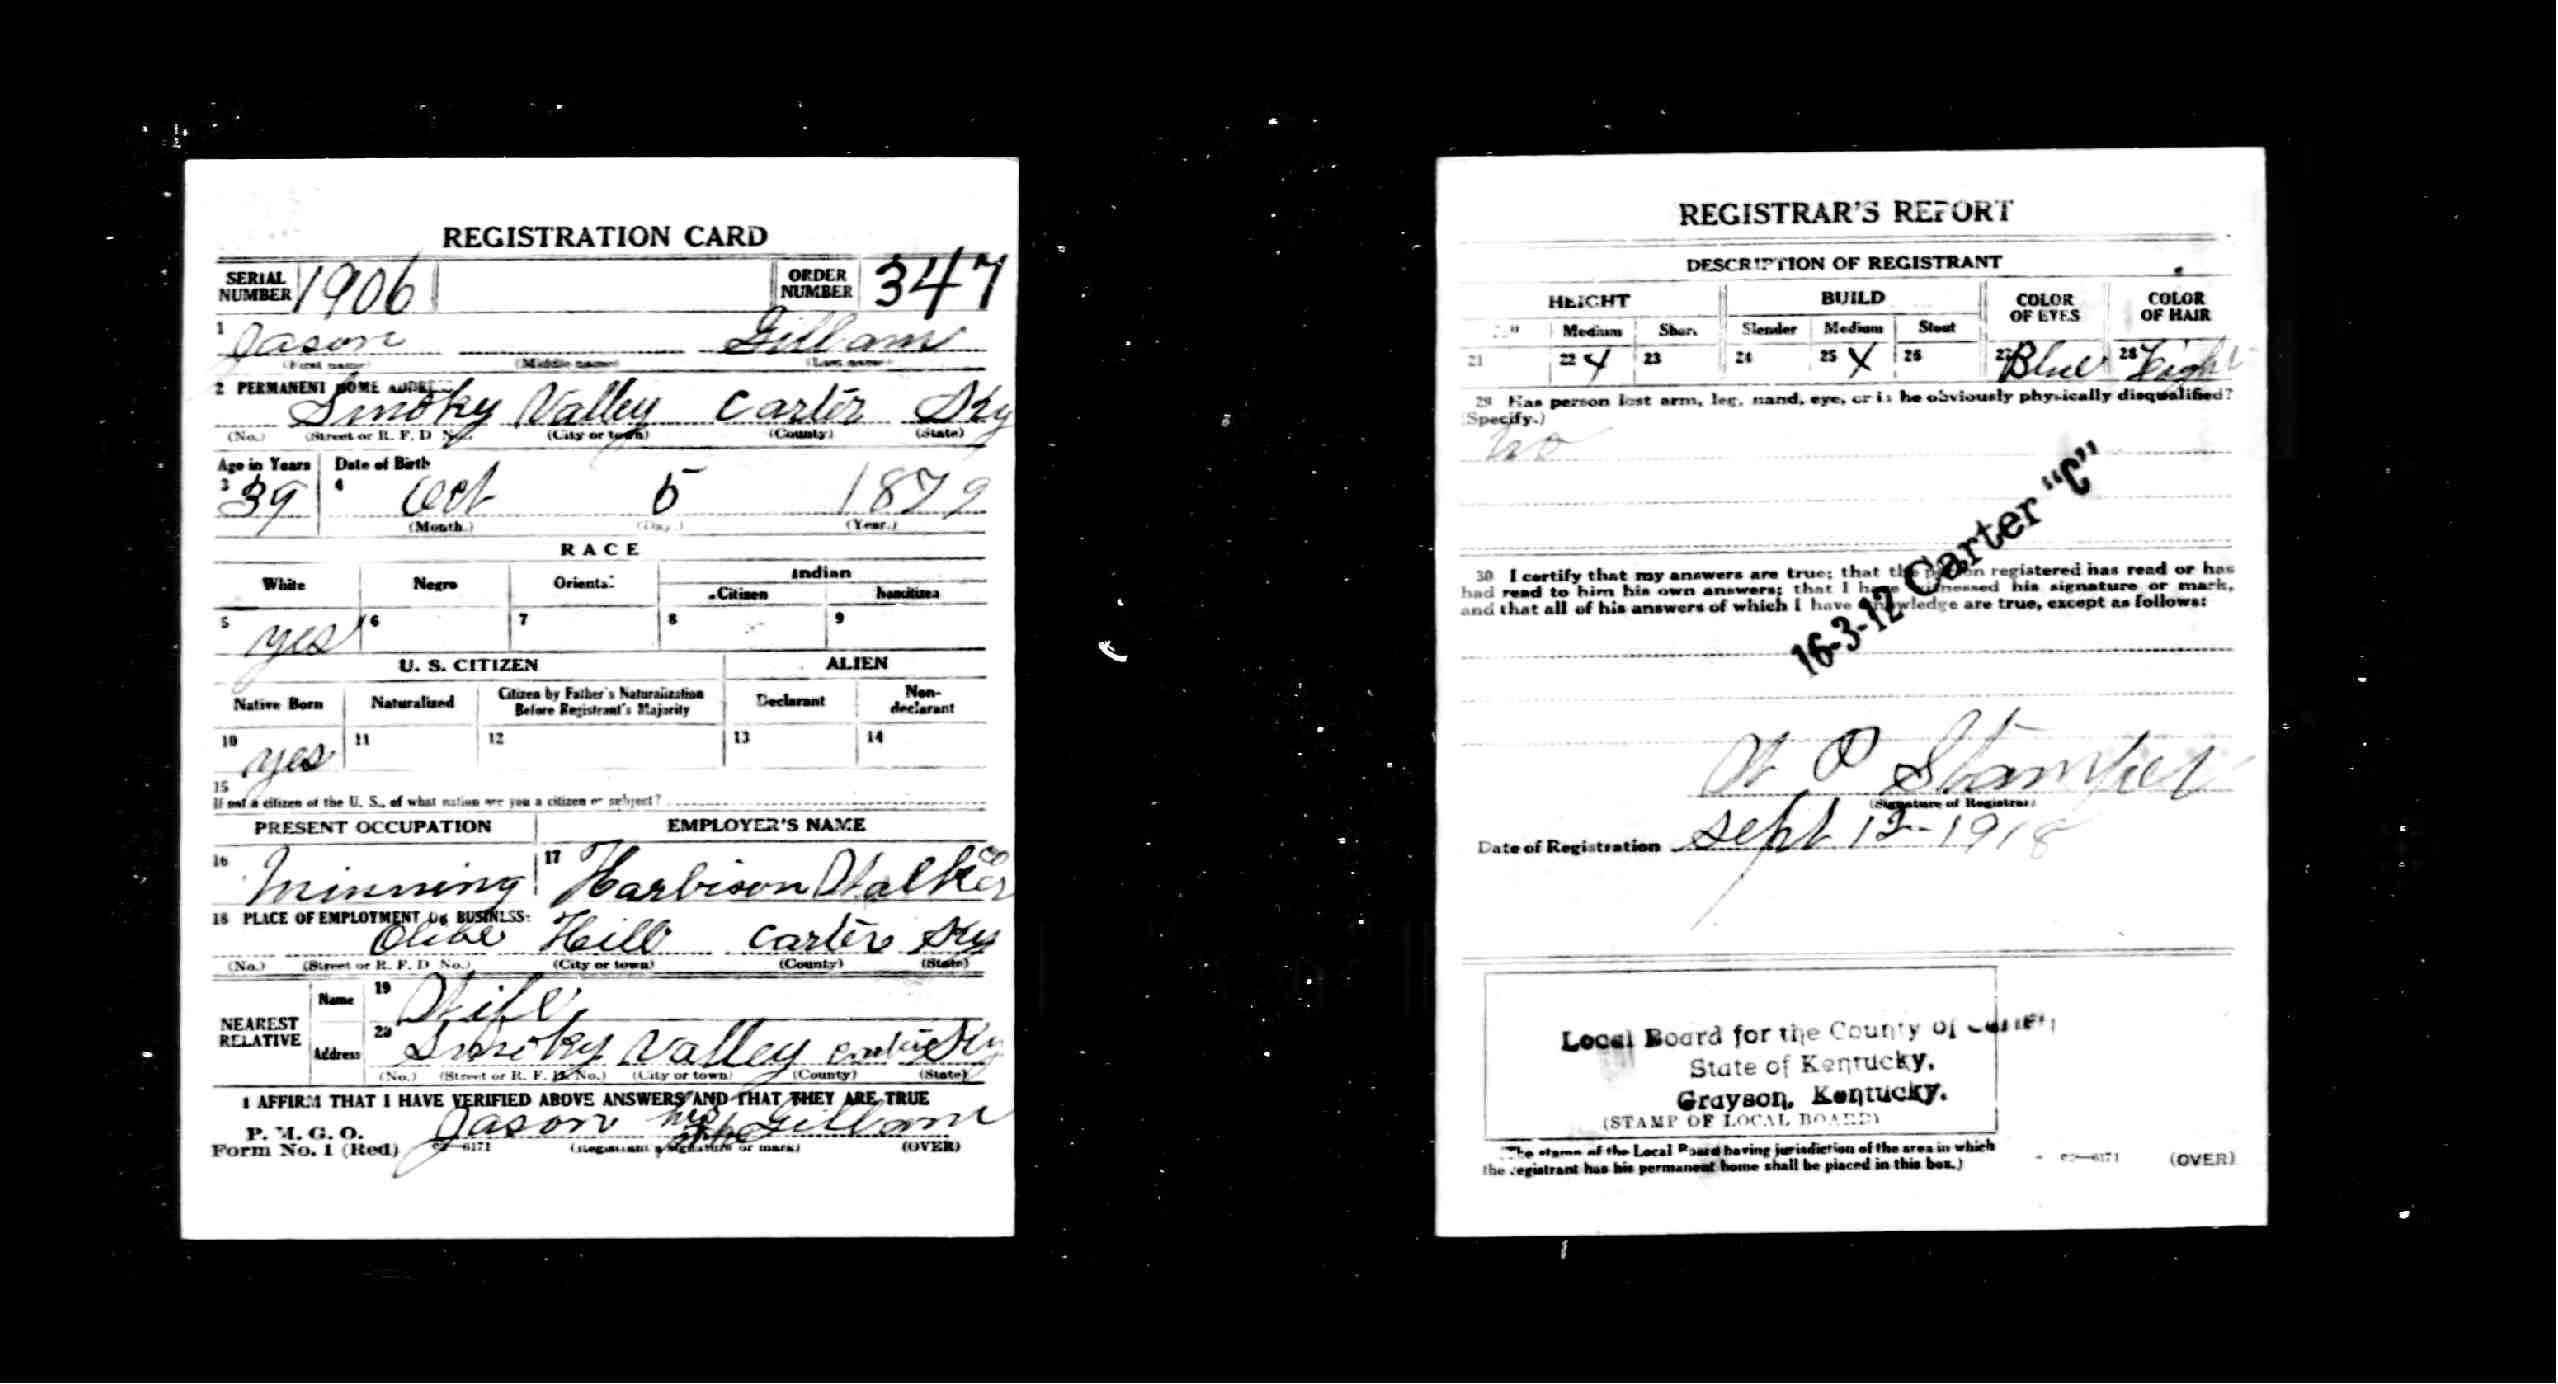 REGISTRATION CARD
SERIAL NUMBER 1906 ORDER NUMBER 347
1 Jason Gillam
(First name) (Middle name) (Last name)
2 PERMANENT HOME ADDRESS
Smoky Valley Carter Ky
(No.) (Street or R. F. D No.) (City or town) (County) (State)
Age in Years Date of Birth
3 39 4 Oct 5 1879
(Month.) (Day.) (Year.)
RACE
White Negro Oriental Indian
Citizen Noncitizen
5 yes 6 7 8 9
U. S. CITIZEN ALIEN
Native Born Naturalized Citizen by Father's Naturalization Before Registrant's Majority Declarant Non-declarant
10 yes 11 12 13 14
15
If not a citizen of the U. S., of what nation are you a citizen or subject?
PRESENT OCCUPATION EMPLOYER'S NAME
16 Minning 17 Harbison Walker
18 PLACE OF EMPLOYMENT OR BUSINESS:
Olive Hill Carter Ky
(No.) (Street or R. F. D No.) (City or town) (County) (State)
NEAREST RELATIVE Name 19 Wife
Address 20 Smoky Valley Carter Ky
(No.) (Street or R. F. D. No.) (City or town) (County) (State)
I AFFIRM THAT I HAVE VERIFIED ABOVE ANSWERS AND THAT THEY ARE TRUE
P. M. G. O.
Form No. 1 (Red) Jason his Gillam
6171 (Registrant's signature or mark) (OVER)
REGISTRAR'S REPORT
DESCRIPTION OF REGISTRANT
HEIGHT BUILD COLOR OF EYES COLOR OF HAIR
Medium Short Slender Medium Stout
21 22 X 23 24 25 X 26 27 Blue 28 Light
29 Has person lost arm, leg, hand, eye, or is he obviously physically disqualified?
(Specify.)
no
30 I certify that my answers are true; that the person registered has read or has
had read to him his own answers; that I have witnessed his signature or mark,
and that all of his answers of which I have knowledge are true, except as follows:
16-3-12 Carter "C"
W P Stamper
(Signature of Registrar)
Date of Registration Sept 12-1918
Local Board for the County of Carter
State of Kentucky,
Grayson, Kentucky.
(STAMP OF LOCAL BOARD)
(The stamp of the Local Board having jurisdiction of the area in which
the registrant has his permanent home shall be placed in this box.)
6171 (OVER)